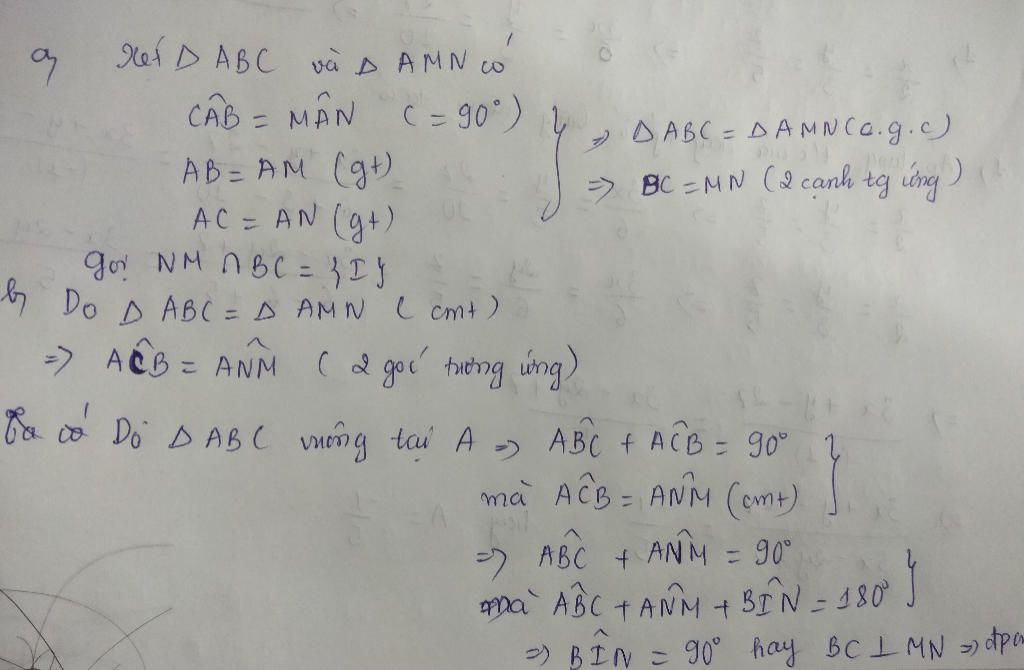 a, Xét Δ ABC và Δ AMN có
CÂB = MÂN ( = 90°)
AB = AM (gt)
AC = AN (gt)
⇒ Δ ABC = Δ AMN (c.g.c)
⇒ BC = MN (2 cạnh tg ứng)
gọi NM ∩ BC = {I}
b, Do Δ ABC = Δ AMN ( cmt)
=> AĈB = AN̂M ( 2 góc tương ứng)
Do Δ ABC vuông tại A => AB̂C + AĈB = 90°
mà AĈB = AN̂M (cmt)
=> AB̂C + AN̂M = 90°
mà AB̂C + AN̂M + BÎN = 180°
=> BÎN = 90° hay BC ⊥ MN => đpcm